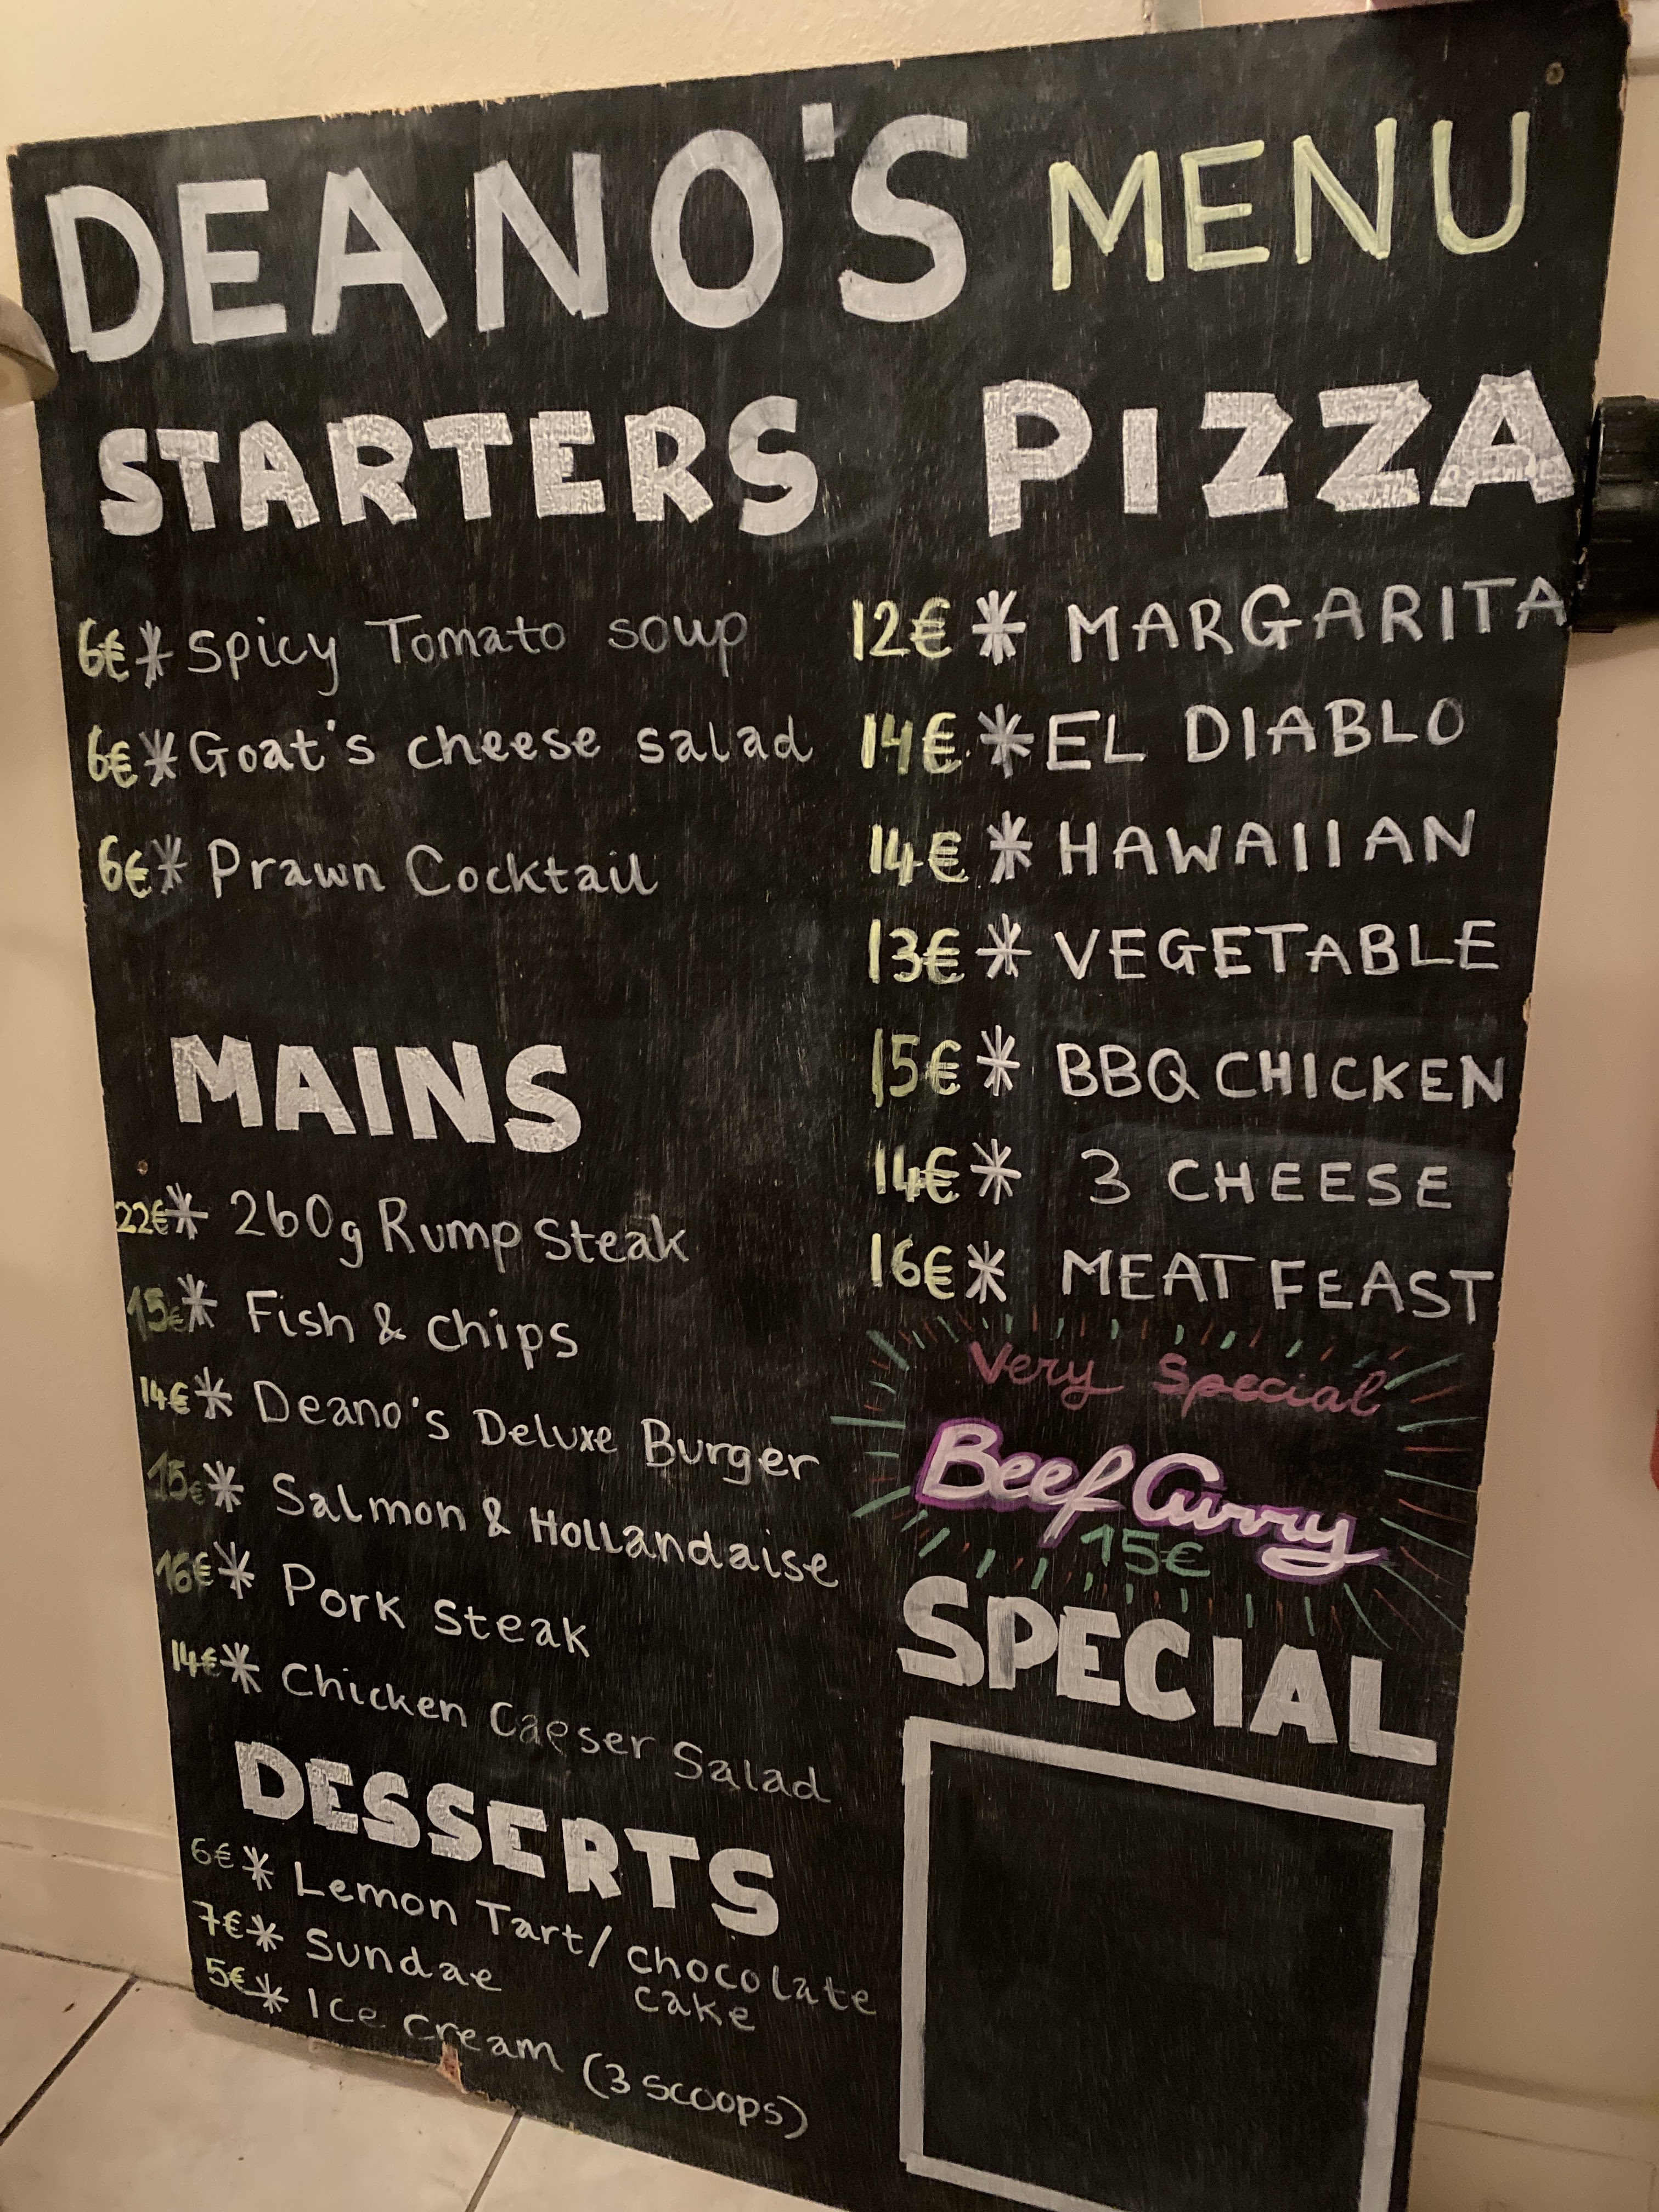 DEANO'S MENU
STARTERS
6€ * Spicy Tomato soup
6€ * Goat's cheese salad
6€ * Prawn Cocktail
MAINS
22€ * 260g Rump Steak
15€ * Fish & chips
14€ * Deano's Deluxe Burger
15€ * Salmon & Hollandaise
16€ * Pork Steak
14€ * Chicken Caeser Salad
DESSERTS
6€ * Lemon Tart/ chocolate
cake
7€ * Sundae
5€ * Ice cream (3 scoops)
PIZZA
12€ * MARGARITA
14€ * EL DIABLO
14€ * HAWAIIAN
13€ * VEGETABLE
15€ * BBQ CHICKEN
14€ * 3 CHEESE
16€ * MEAT FEAST
Very Special
Beef Curry
15€
SPECIAL